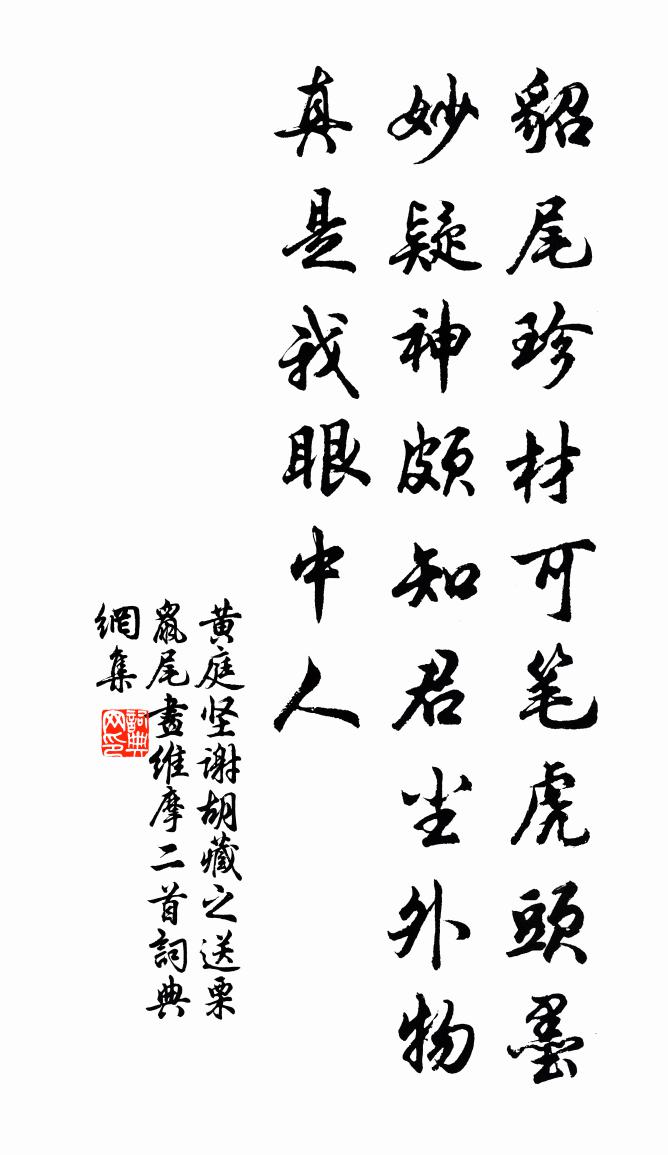 貂尾珍材可笔虎頭墨
妙疑神頗知君尘外物
真是我眼中人
黄庭坚谢胡藏之送栗
鼠尾畫维摩二首詞典
網集
詞典
网印